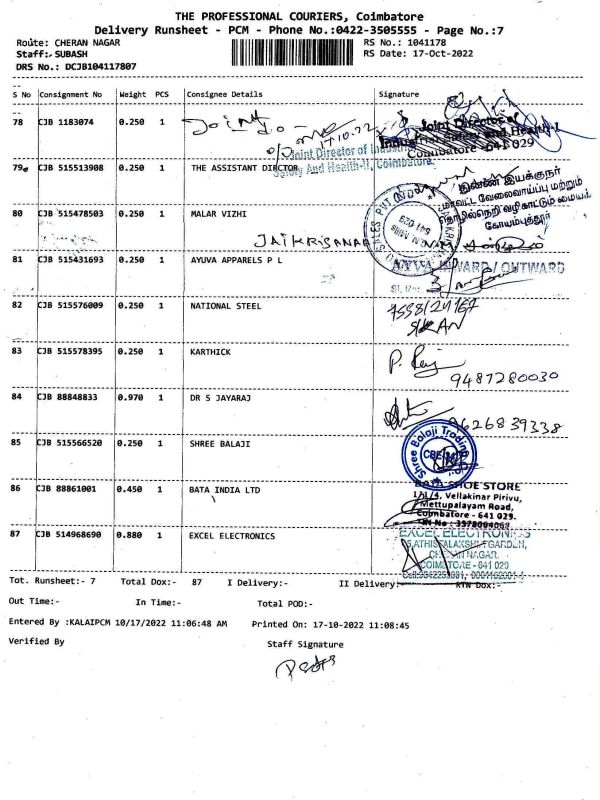 THE PROFESSIONAL COURIERS, Coimbatore
Delivery Runsheet - PCM - Phone No.:0422-3505555 - Page No.:7
Route: CHERAN NAGAR RS No.: 1041178
Staff:- SUBASH RS Date: 17-Oct-2022
DRS No.: DCJB104117807
S No Consignment No Weight PCS Consignee Details Signature
78 CJB 1183074 0.250 1
17.10.22
Joint Director of
Industrial Safety and Health-I
Coimbatore - 641 029
Joint Director of Industrial
Safety And Health-II, Coimbatore.
79 CJB 515513908 0.250 1 THE ASSISTANT DIRCTOR
துணை இயக்குநர்
மாவட்ட வேலைவாய்ப்பு மற்றும்
தொழில்நெறி வழிகாட்டும் மையம்
கோயம்புத்தூர்
80 CJB 515478503 0.250 1 MALAR VIZHI
JAIKRISANAA
641 029
81 CJB 515431693 0.250 1 AYUVA APPARELS P L
INWARD / OUTWARD
82 CJB 515576009 0.250 1 NATIONAL STEEL
83 CJB 515578395 0.250 1 KARTHICK
P. Raj
9487280030
84 CJB 88848833 0.970 1 DR S JAYARAJ
9626839338
85 CJB 515566520 0.250 1 SHREE BALAJI
Shree Balaji Trading
86 CJB 88861001 0.450 1 BATA INDIA LTD
BATA SHOE STORE
1/1/4, Vellakinar Pirivu,
Mettupalayam Road,
Coimbatore - 641 029.
87 CJB 514968690 0.880 1 EXCEL ELECTRONICS
EXCEL ELECTRONICS
CHERAN NAGAR
COIMBATORE - 641 029
Tot. Runsheet:- 7 Total Dox:- 87 I Delivery:- II Delivery:- RTN Dox:-
Out Time:- In Time:- Total POD:-
Entered By :KALAIPCM 10/17/2022 11:06:48 AM Printed On: 17-10-2022 11:08:45
Verified By Staff Signature